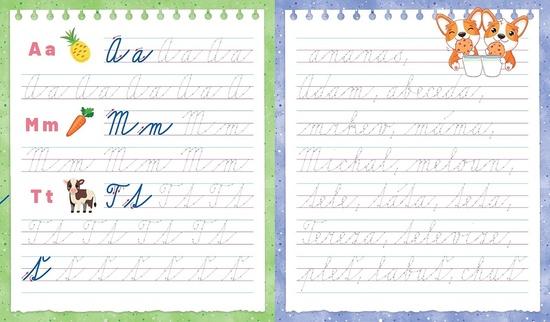 Aa A a A a A a
A a A a A a A a
Mm M m M m
M m M m M m M m
Tt T t T t T t
T t T t T t T t
ť ť ť ť ť ť ť ť
ananas,
Adam, abeceda,
mrkev, máma,
Michal, meloun,
tele, táta, teta,
Tereza, televize,
pleť, labuť,